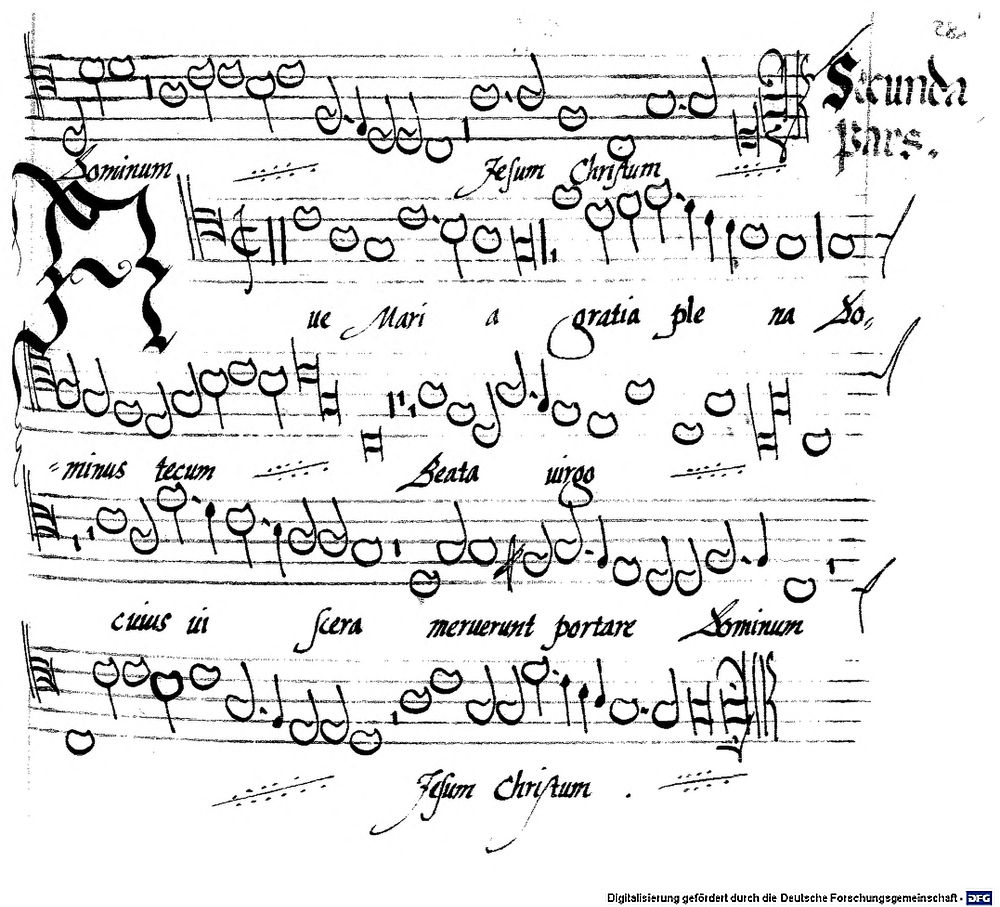 281
Secunda
pars.
Dominum Jesum Christum
Aue Mari a gratia ple na Do,
=minus tecum Beata uirgo
cuius ui scera meruerunt portare Dominum
Jesum Christum .
Digitalisierung gefördert durch die Deutsche Forschungsgemeinschaft - DFG